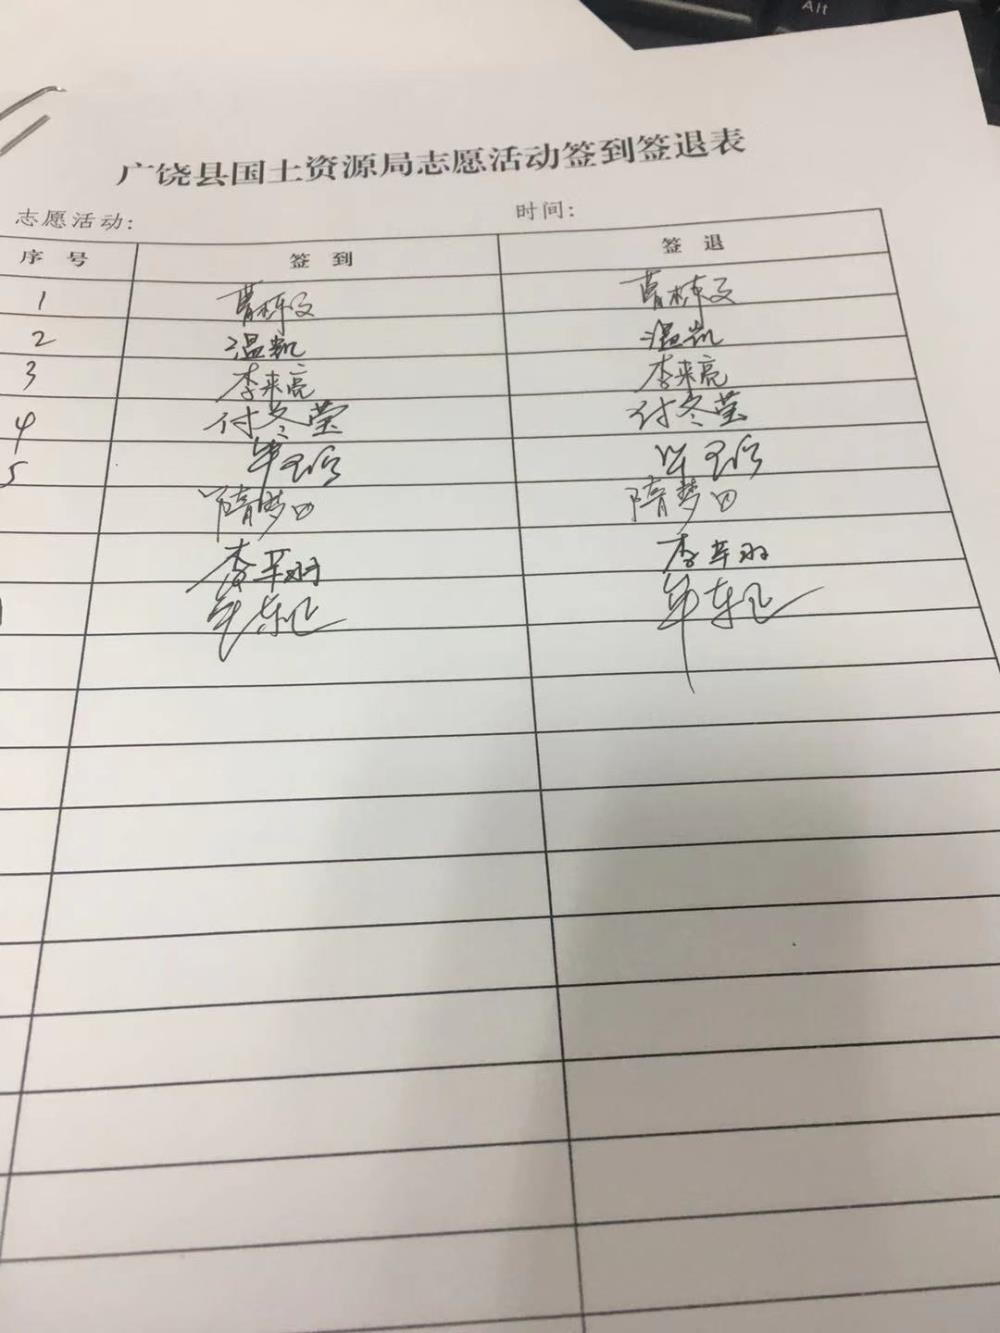 Alt
广饶县国土资源局志愿活动签到签退表
志愿活动: 时间:
序号 签到 签退
1 曹栋文 曹栋文
2 温凯 温凯
3 李来亮 李来亮
4 付冬莹 付冬莹
5
隋梦 隋梦
李 李